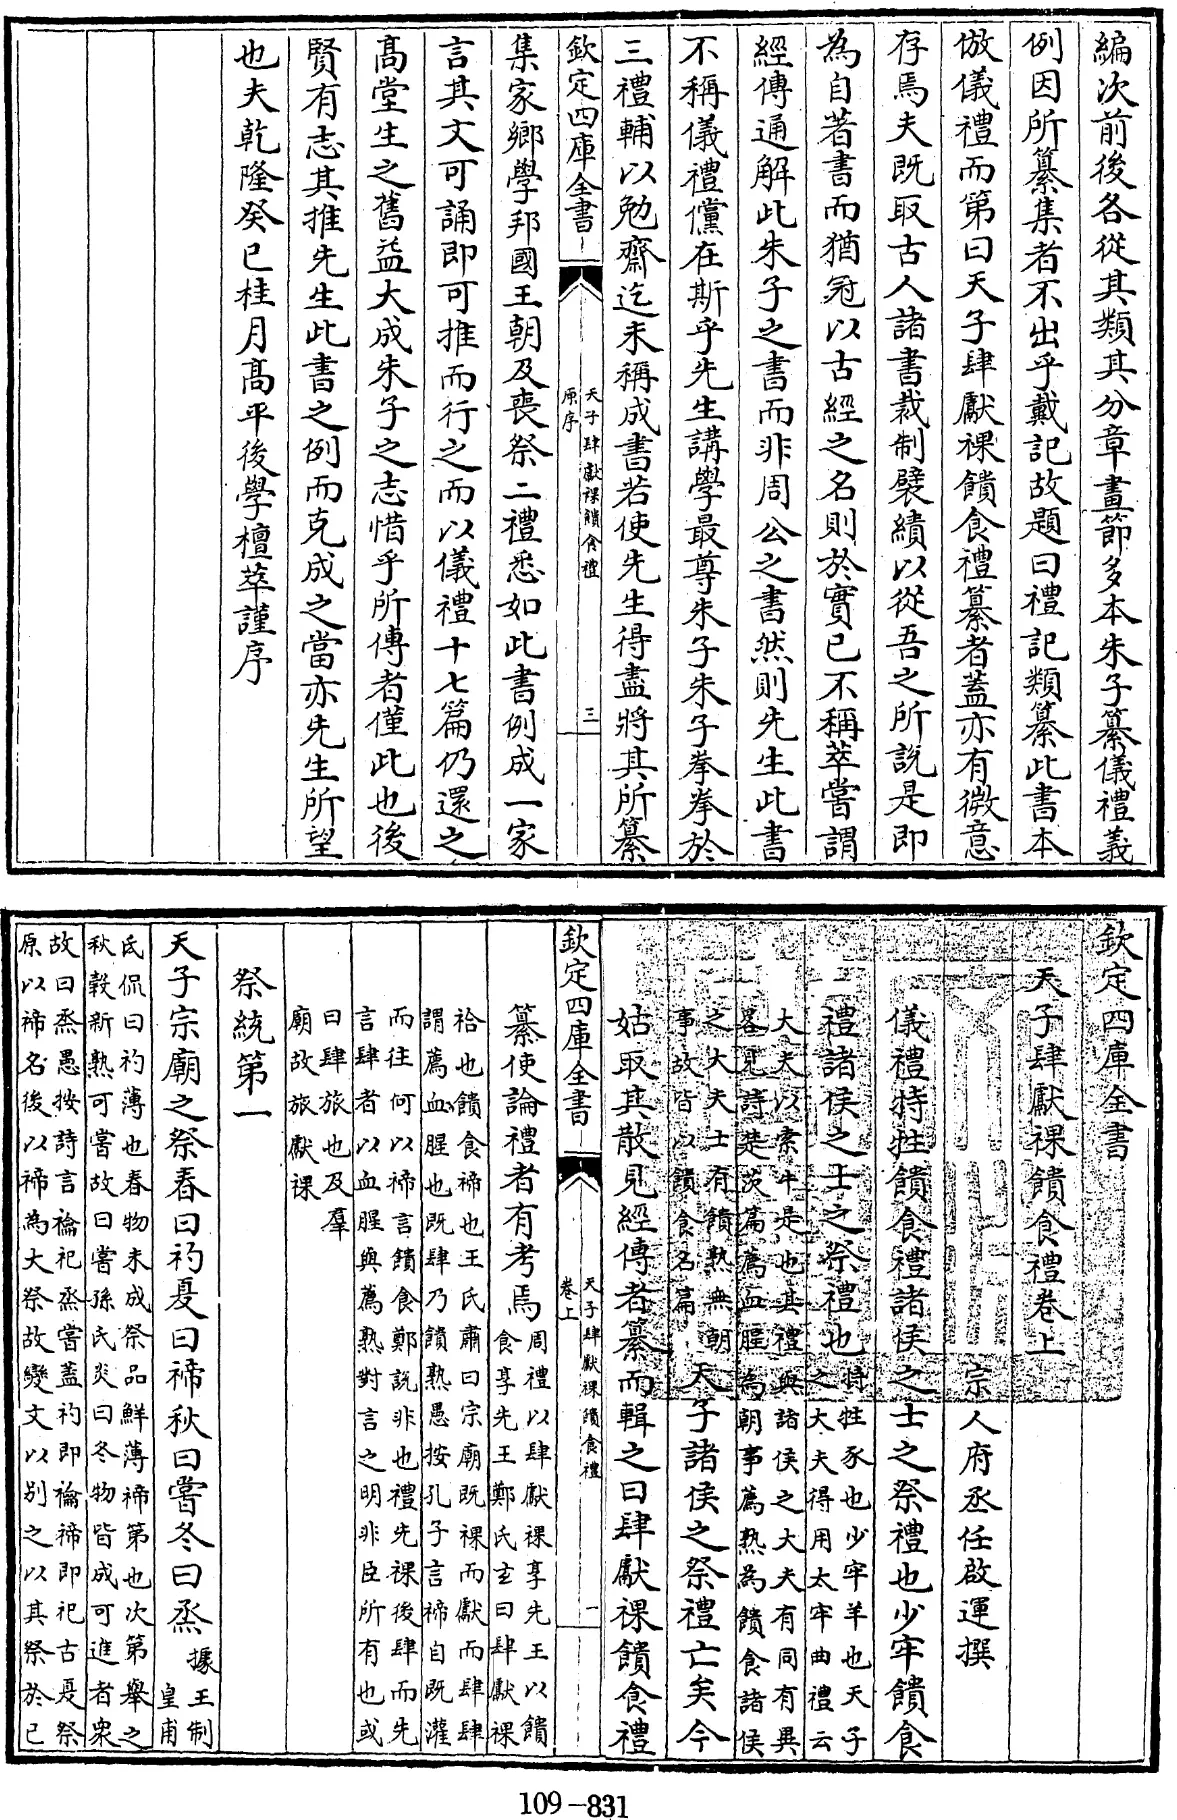 編次前後各從其類其分章畫節多本朱子纂儀禮義
例因所纂集者不出乎戴記故題曰禮記類纂此書本
倣儀禮而第曰天子肆獻祼饋食禮纂者蓋亦有微意
存焉夫既取古人諸書裁制襞績以從吾之所説是即
為自著書而猶冠以古經之名則於實已不稱萃嘗謂
經傳通解此朱子之書而非周公之書然則先生此書
不稱儀禮儻在斯乎先生講學最尊朱子朱子拳拳於
三禮輔以勉齋迄未稱成書若使先生得盡將其所纂
欽定四庫全書
天子肆獻祼饋食禮
原序
三
集家鄉學邦國王朝及喪祭二禮悉如此書例成一家
言其文可誦即可推而行之而以儀禮十七篇仍還之
髙堂生之舊益大成朱子之志惜乎所傳者僅此也後
賢有志其推先生此書之例而克成之當亦先生所望
也夫乾隆癸巳桂月髙平後學檀萃謹序
欽定四庫全書
天子肆獻祼饋食禮卷上
宗人府丞任啟運撰
儀禮特牲饋食禮諸侯之士之祭禮也少牢饋食
禮諸侯之士之祭禮也特牲豕也少牢羊也天子
之大夫得用太牢曲禮云
大夫以索牛是也其禮與諸侯之大夫有同有異
畧見詩楚茨篇薦血腥為朝事薦熟為饋食諸侯
之大夫士有饋熟無朝
事故皆以饋食名篇天子諸侯之祭禮亡矣今
姑取其散見經傳者纂而輯之曰肆獻祼饋食禮
欽定四庫全書
天子肆獻祼饋食禮
卷上
一
纂使論禮者有考焉周禮以肆獻祼享先王以饋
食享先王鄭氏玄曰肆獻祼
祫也饋食禘也王氏肅曰宗廟既祼而獻而肆肆
謂薦血腥也既肆乃饋熟愚按孔子言禘自既灌
而往何以禘言饋食鄭説非也禮先祼後肆而先
言肆者以血腥與薦熟對言之明非臣所有也或
曰肆旅也及羣
廟故旅獻祼
祭統第一
天子宗廟之祭春曰礿夏曰禘秋曰嘗冬曰烝據王制
皇甫
氏侃曰礿薄也春物未成祭品鮮薄禘第也次第舉之
秋穀新熟可嘗故曰嘗孫氏炎曰冬物皆成可進者衆
故曰烝愚按詩言禴祀烝嘗蓋礿即禴禘即祀古夏祭
原以禘名後以禘為大祭故變文以别之以其祭於已
109-831